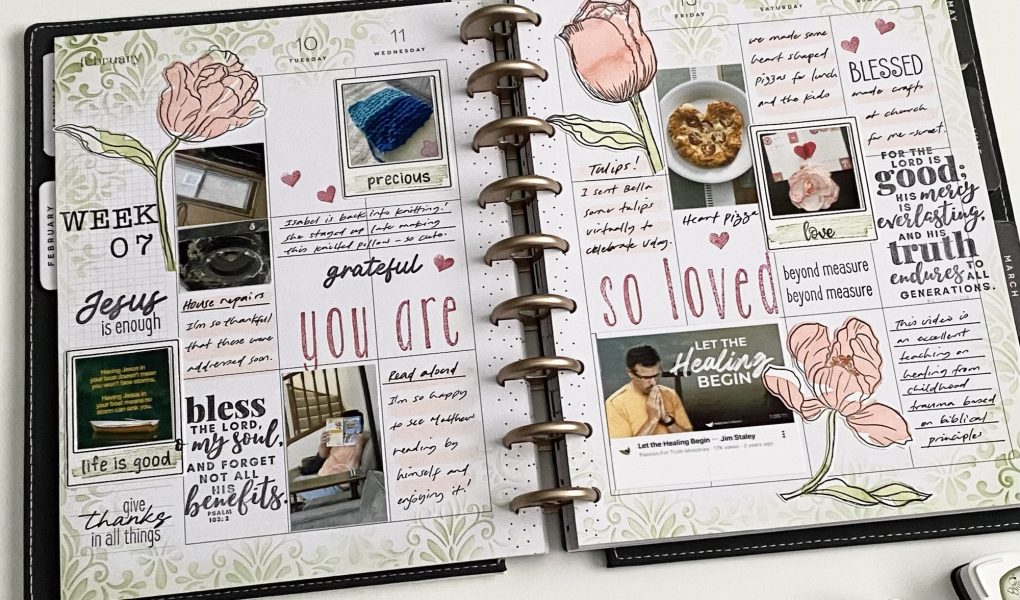 february
10
TUESDAY
11
WEDNESDAY
WEEK
07
FEBRUARY
Jesus
is enough
Having Jesus in
your boat doesn't mean
you won't face storms.
Having Jesus in
your boat means no
storm can sink you.
life is good
give
thanks
in all things
House repairs
I'm so thankful
that these were
addressed soon.
bless
THE LORD,
my soul,
AND FORGET
NOT ALL
HIS
benefits.
PSALM
103:2
precious
Isabel is back into knitting!
She stayed up late making
this knitted pillow - so cute.
grateful
you are
Read aloud
I'm so happy
to see Matthew
reading by
himself and
enjoying it!
13
FRIDAY
SATURDAY
SUNDAY
Tulips!
I sent Bella
some tulips
virtually to
celebrate vday.
Heart Pizza
we made some
heart shaped
pizzas for lunch
and the kids
BLESSED
made crafts
at church
for me - sweet.
love
FOR THE
LORD IS
good;
HIS mercy
IS
everlasting,
AND HIS
truth
endures TO
ALL
GENERATIONS.
so loved
beyond measure
beyond measure
LET THE
Healing
BEGIN
Let the Healing Begin — Jim Staley
Passion For Truth Ministries · 17K views · 3 years ago
This video is
an excellent
teaching on
healing from
childhood
trauma based
on biblical
principles
MAY
MARCH